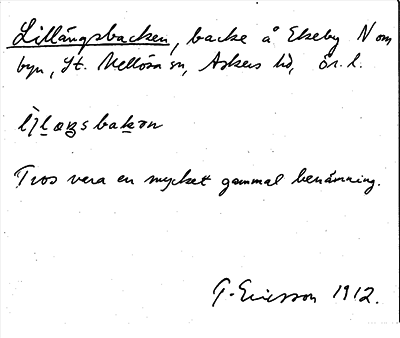 Lillängsbacken, backe å Ekeby N om
byn, St. Mellösa sn, Askers hd, Ör. l.
Tros vara en mycket gammal benämning.
G. Ericsson 1912.